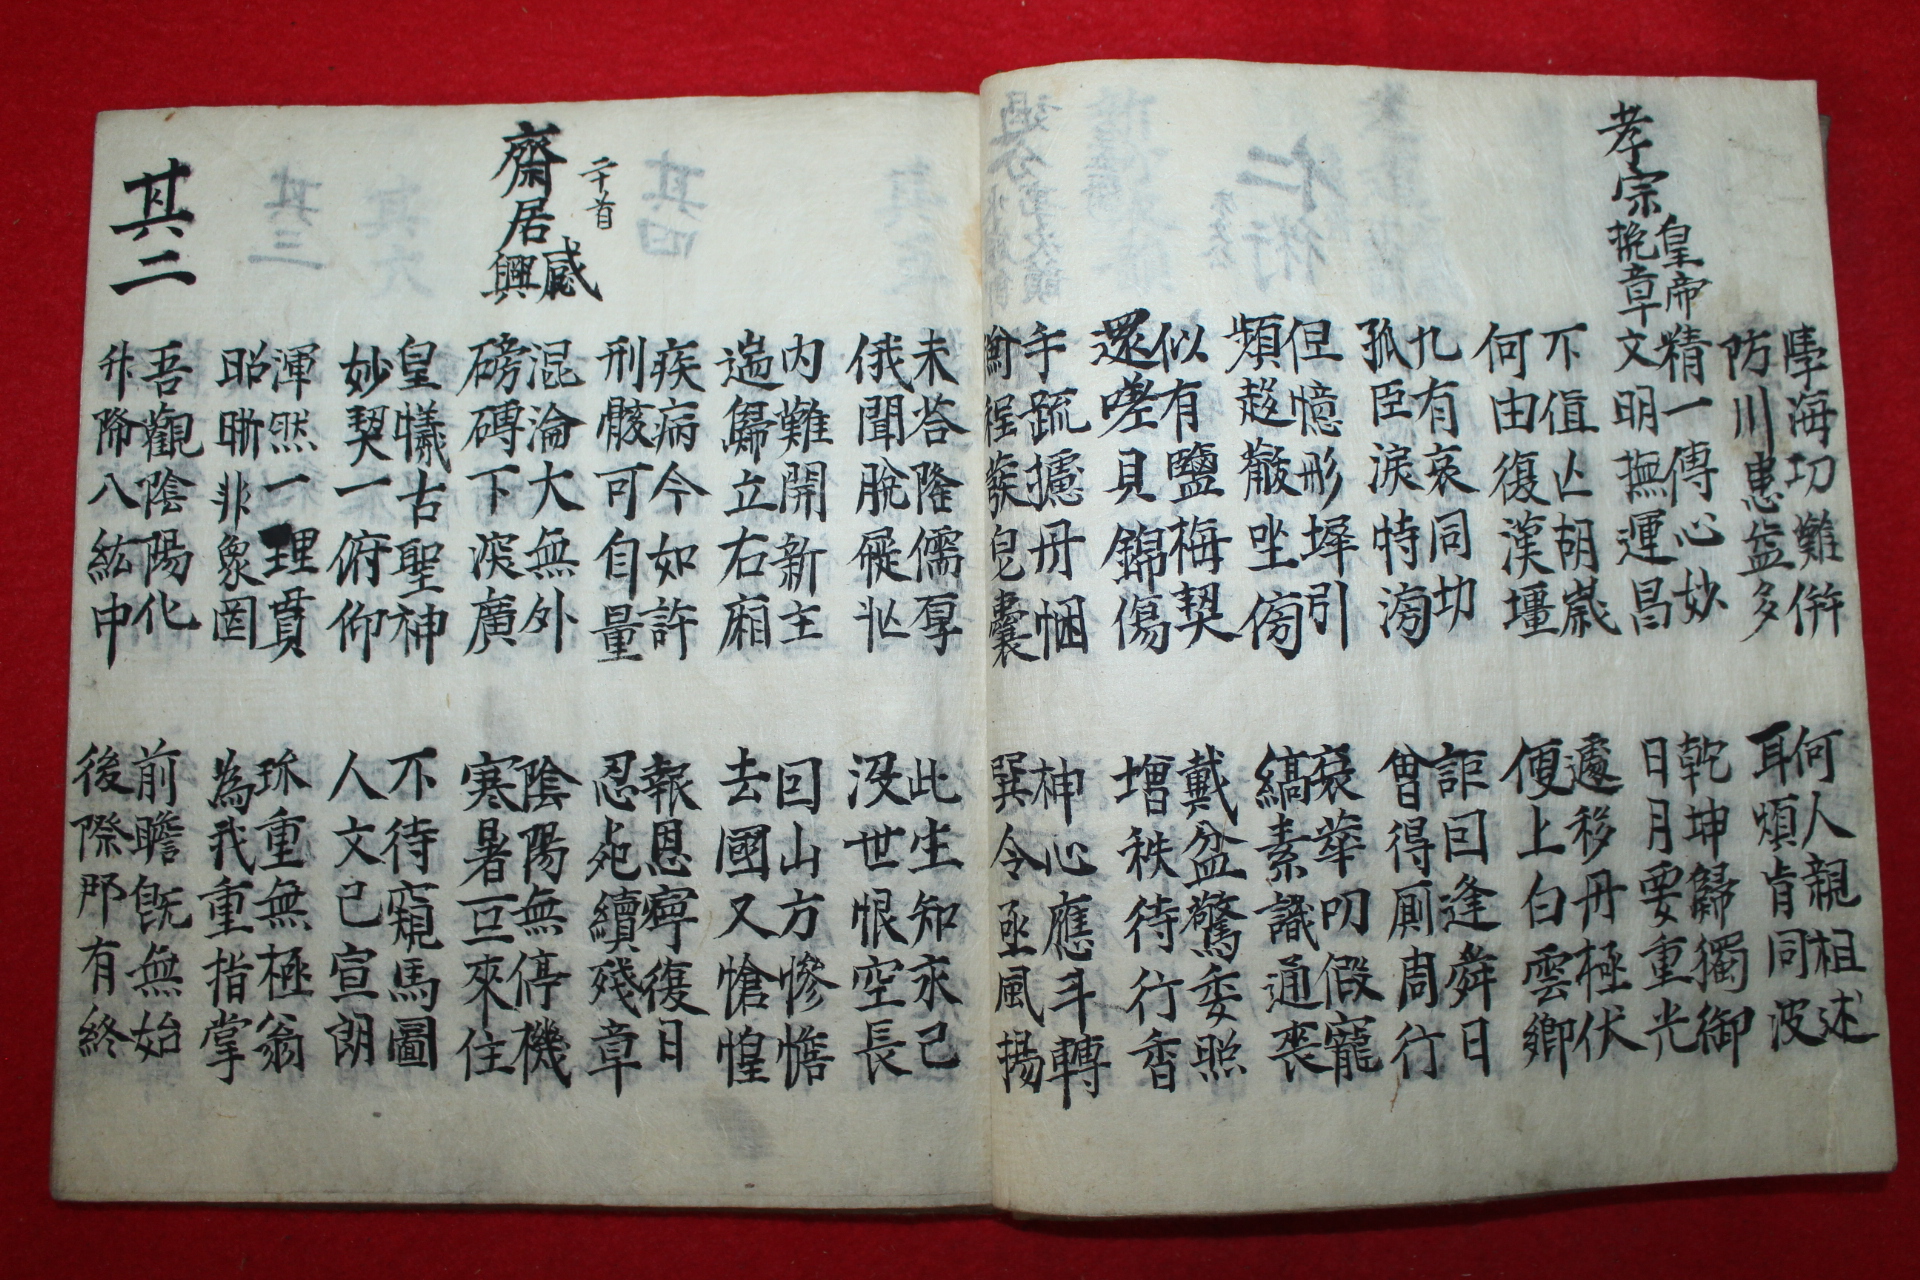 學海功難併
防川患益多
何人親祖述
耳順肯同波
孝宗皇帝挽章
精一傳心妙
文明撫運昌
乾坤歸獨御
日月要重光
不值亡胡歲
何由復漢壃
遽移丹極伏
便上白雲鄉
九有哀同切
孤臣淚特滂
詎回逢舜日
曾得厠周行
但憶形墀引
頻趍黻坐傍
袞華叨假寵
縞素識通喪
似有鹽梅契
還嗟貝錦傷
戴盆驚委照
增秩待行香
手疏攄丹悃
衡程發皂囊
神心應斗轉
巽令亟風揚
未答隆儒厚
俄聞脫屣忙
此生知永已
沒世恨空長
內難開新主
遄歸立右廂
回山方慘憺
去國又愴惶
疾病今如許
刑骸可自量
報恩寧復日
忍死續殘章
齋居感興 二十首
混淪大無外
磅礡下深廣
陰陽無停機
寒暑互來往
皇犧古聖神
妙契一俯仰
不待窺馬圖
人文已宣朗
渾然一理貫
昭晰非象罔
珎重無極翁
為我重指掌
其二
吾觀陰陽化
升降八紘中
前瞻既無始
後際那有終